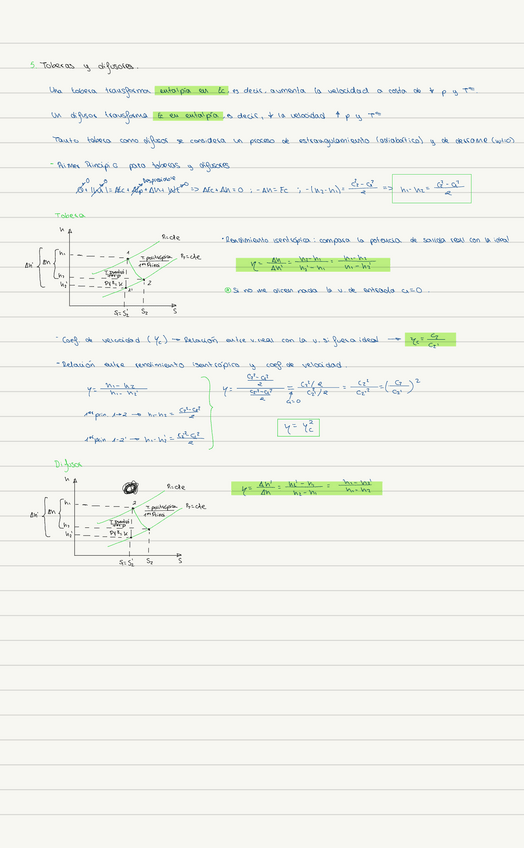 5. Toberas y difusores.
Una tobera transforma entalpía en Ec, es decir, aumenta la velocidad a costa de ↓ p y Tª.
Un difusor transforma Ec en entalpía, es decir, ↓ la velocidad ↑ p y Tª
Tanto tobera como difusor se considera un proceso de estrangulamiento (adiabático) y de derrame (w=0)
- Primer Principio para toberas y difusores
=> ΔEc + Δh = 0 ; -Δh = Ec ; -(h₂-h₁) = (C₂²-C₁²)/2 => h₁-h₂ = (C₂²-C₁²)/2
Tobera
h
P₁=cte
P₂=cte
Δh' Δh
h₁
h₂
h₂'
1
2
S₁=S₂' S₂ S
· Rendimiento isentrópico: compara la potencia de salida real con la ideal
η = Δh/Δh' = (h₂-h₁)/(h₂'-h₁) = (h₁-h₂)/(h₁-h₂')
Si no me dicen nada la v. de entrada c₁=0.
· Coef. de velocidad (φc) → Relación entre v. real con la v. si fuera ideal → φc = C₂/C₂'
- Relación entre rendimiento isentrópico y coef de velocidad.
η = (h₁-h₂)/(h₁-h₂')
1er prin. 1→2 → h₁-h₂ = (C₂²-C₁²)/2
1er prin 1-2' → h₁-h₂' = (C₂'²-C₁²)/2
η = ((C₂²-C₁²)/2)/((C₂'²-C₁²)/2) = (C₂²/2)/(C₂'²/2) = C₂²/C₂'² = (C₂/C₂')²
C₁=0
η = φc²
Difusor
h
P₁=cte
P₂=cte
Δh' Δh
h₁
h₂
h₂'
2
S₁=S₂' S₂ S
η = Δh'/Δh = (h₂'-h₁)/(h₂-h₁) = (h₁-h₂')/(h₁-h₂)